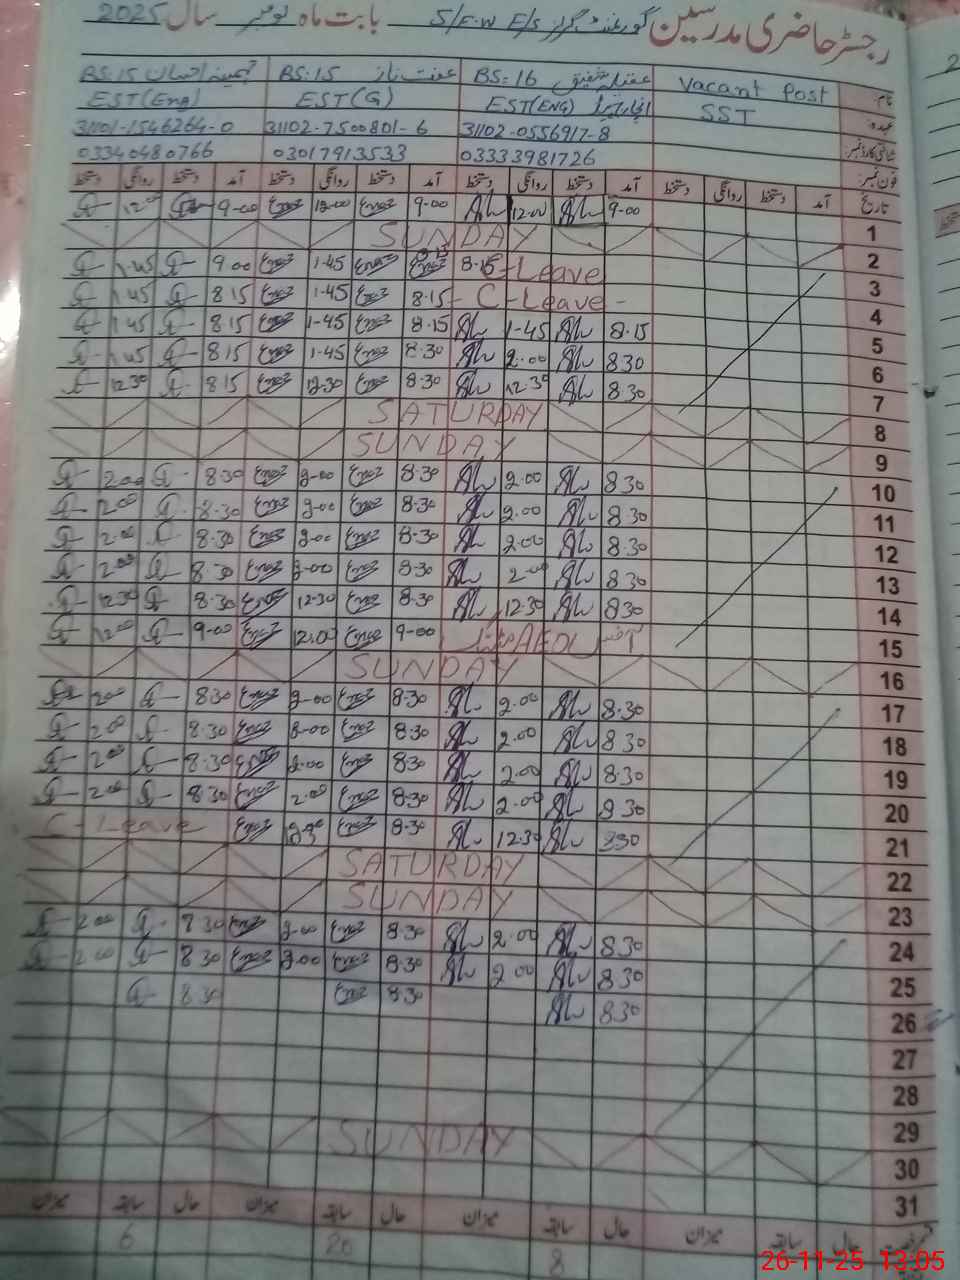 رجسٹر حاضری مدرسین گورنمنٹ گرلز E/S S/F.W بابت ماہ نومبر سال 2025
نام Vacant Post عقیلہ شفیق BS: 16 عفت ناز BS: 15 BS: 15
عہدہ SST EST(ENG) EST(G) EST(Eng)
شناختی کارڈ نمبر 31102-0556917-8 31102-7500801-6 31101-1546264-0
فون نمبر 03333981726 03017913533 03340480766
تاریخ آمد دستخط روانگی دستخط آمد دستخط روانگی دستخط آمد دستخط روانگی دستخط آمد دستخط روانگی دستخط
1 9-00 12.00 9-00 12.00 9-00 12.00
2 SUNDAY
3 C-Leave 8.15 1-45 9.00 1.45
4 C-Leave 8.15 1-45 8.15 1.45
5 8.15 1-45 8.15 1-45 8.15 1.45
6 8.30 2.00 8.30 1-45 8.15 1.45
7 8.30 12.30 8.30 12.30 8.15 12.30
8 SATURDAY
9 SUNDAY
10 8.30 2.00 8.30 2.00 8.30 2.00
11 8.30 2.00 8.30 2.00 8.30 2.00
12 8.30 2.00 8.30 2.00 8.30 2.00
13 8.30 2.00 8.30 2.00 8.30 2.00
14 8.30 12.30 8.30 12.30 8.30 12.30
15 AEO آفس 9-00 12.00 9-00 12.00
16 SUNDAY
17 8.30 2.00 8.30 2.00 8.30 2.00
18 8.30 2.00 8.30 2.00 8.30 2.00
19 8.30 2.00 8.30 2.00 8.30 2.00
20 8.30 2.00 8.30 2.00 8.30 2.00
21 8.30 12.30 8.30 C-Leave
22 SATURDAY
23 SUNDAY
24 8.30 2.00 8.30 2.00 8.30 2.00
25 8.30 2.00 8.30 2.00 8.30 2.00
26 8.30 8.30 8.30
27
28
29
30 SUNDAY
31
حال سابقہ میزان حال سابقہ میزان حال سابقہ میزان حال سابقہ میزان
8 20 6
26-11-25 13:05